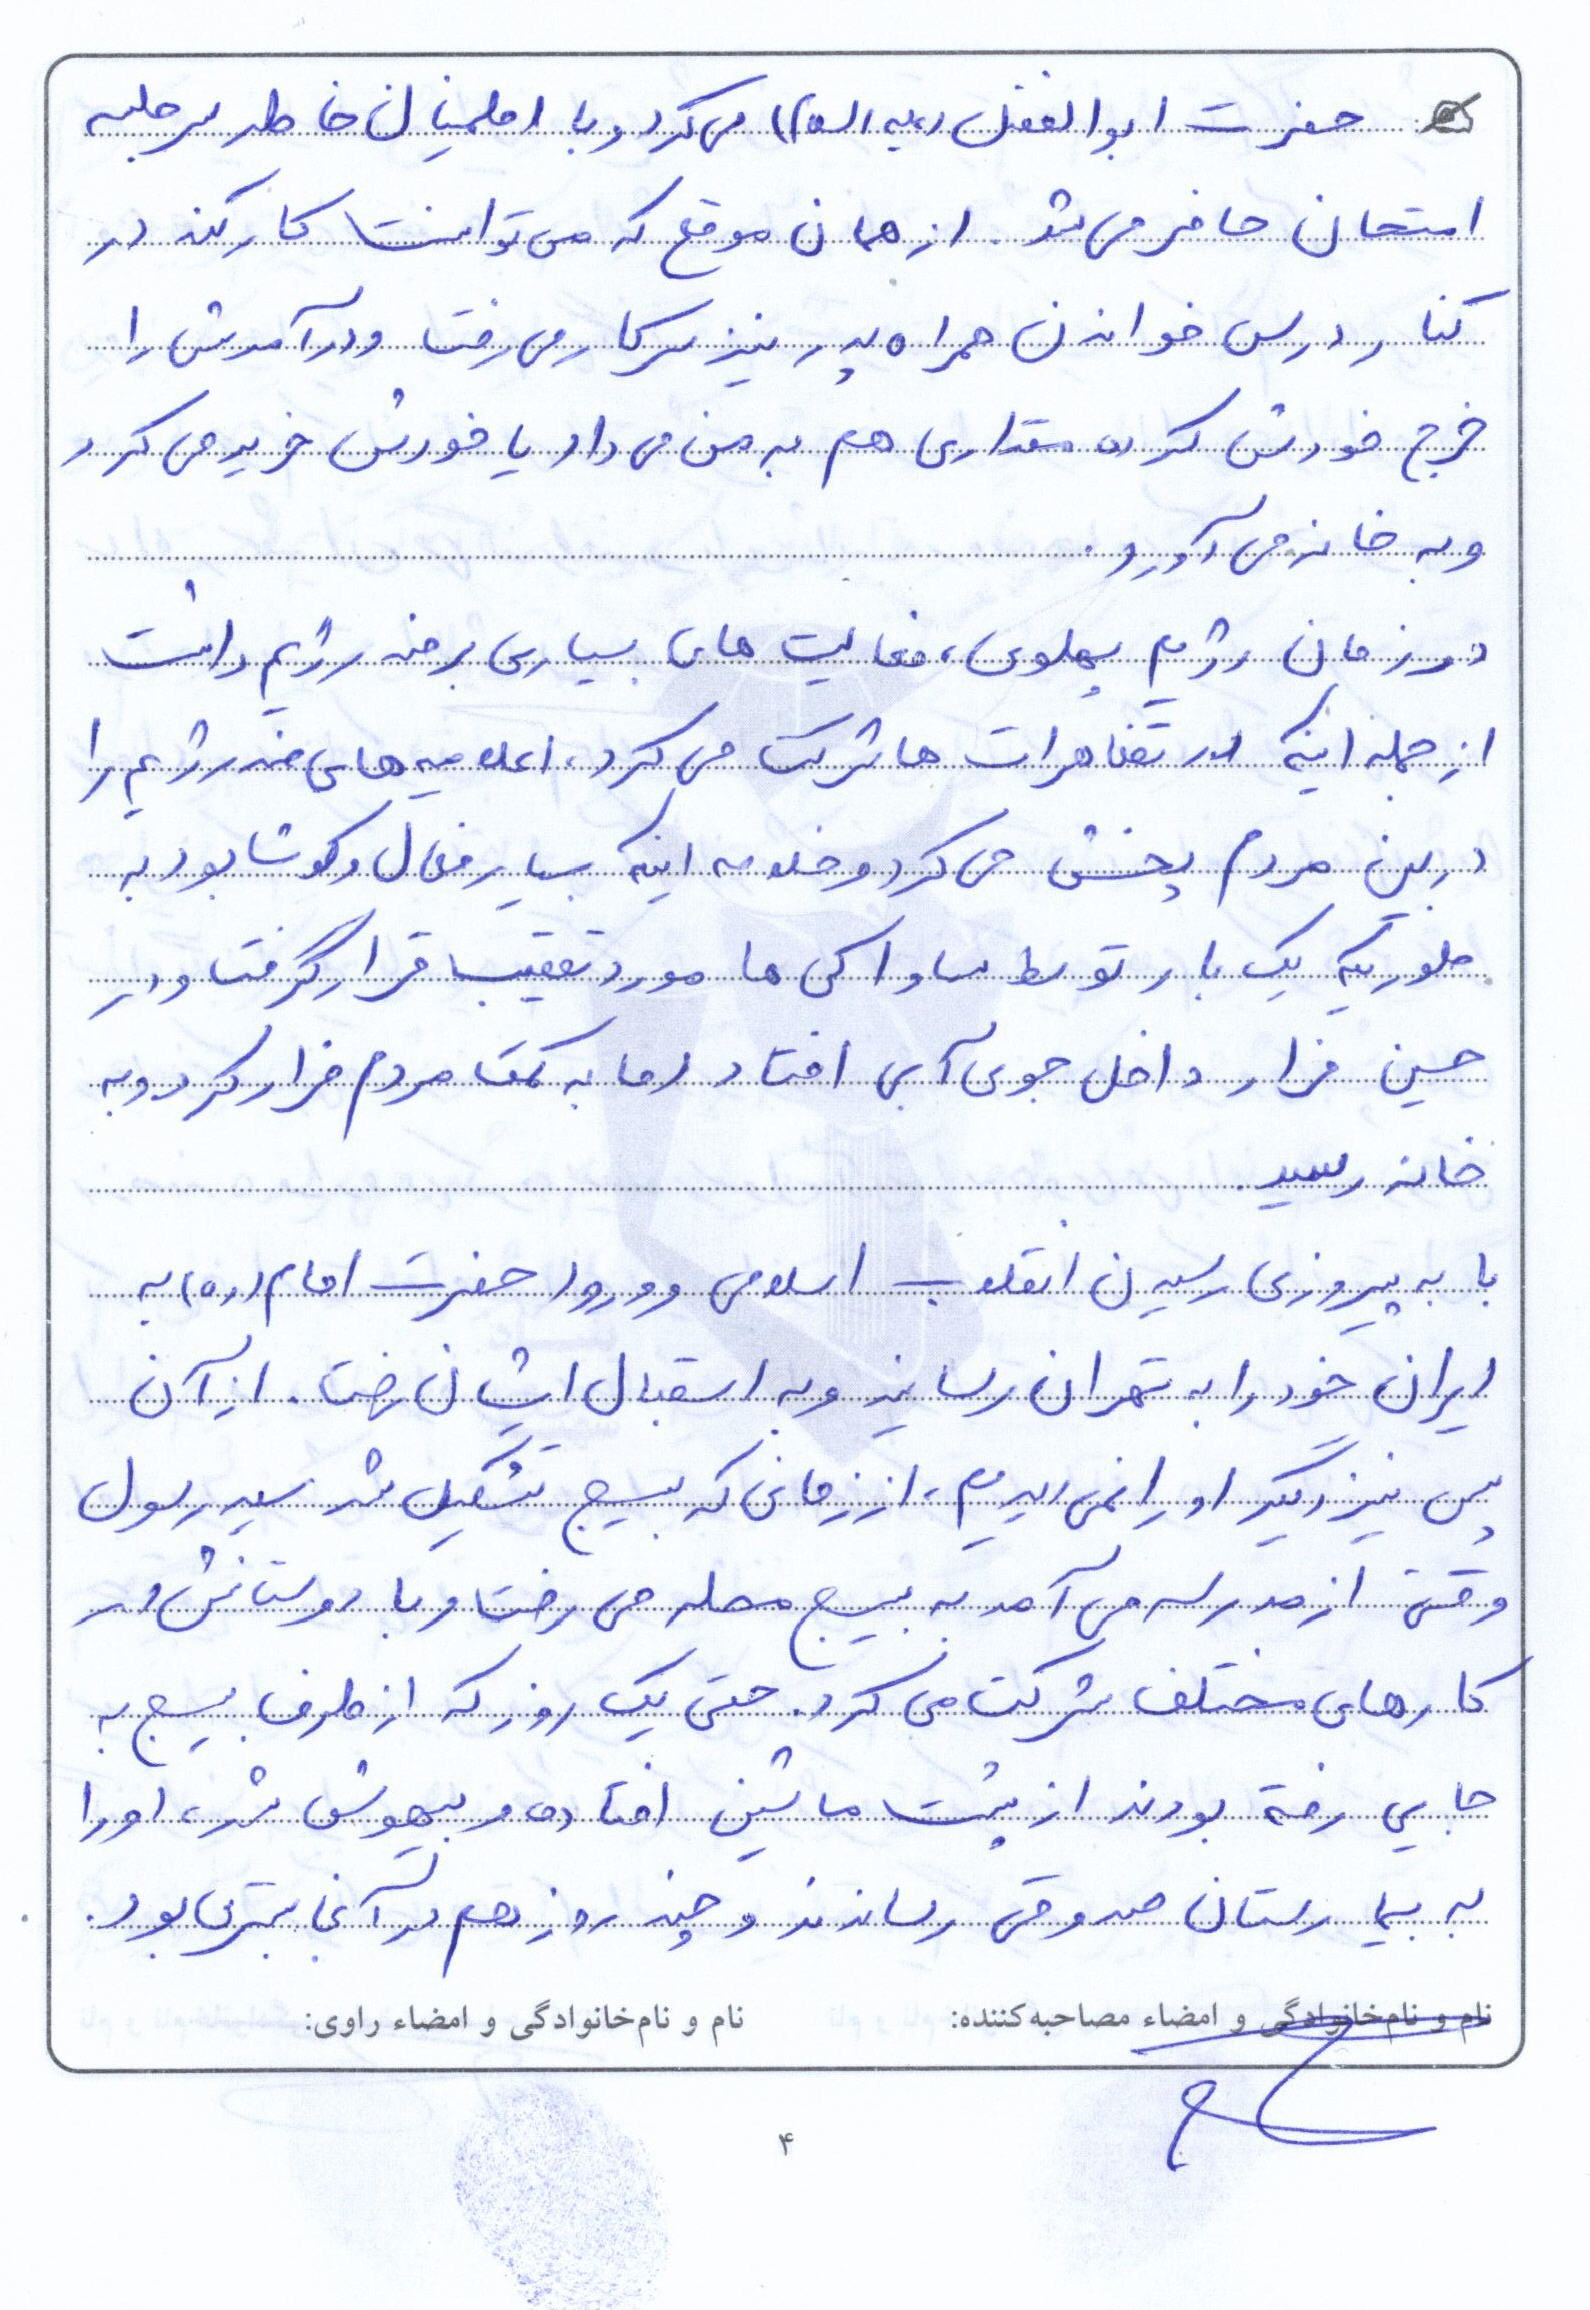 حضرت ابوالفضل (علیه السلام) می‌کرد و با اطمینان خاطر سر جلسه
امتحان حاضر می‌شد. از همان موقع که می‌توانست کار کند در
کنار درس خواندن همراه پدر نیز سر کار می‌رفت و درآمدش را
خرج خودش کرده مقداری هم به من می‌داد یا خودش خرید می‌کرد
و به خانه می‌آورد.
در زمان رژیم پهلوی، فعالیت‌های بسیاری بر ضد رژیم داشت
از جمله اینکه در تظاهرات‌ها شرکت می‌کرد، اعلامیه‌های ضد رژیم را
در بین مردم پخش می‌کرد و خلاصه اینکه بسیار فعال و کوشا بود به
طوریکه یک بار توسط ساواکی‌ها مورد تعقیب قرار گرفت و در
حین فرار داخل جوی آبی افتاد اما به کمک مردم فرار کرد و به
خانه رسید.
با به پیروزی رسیدن انقلاب اسلامی و ورود حضرت امام (ره) به
ایران خود را به تهران رسانید و به استقبال ایشان رفت. از آن
پس نیز دیگر او را نمی‌دیدیم، از زمانی که بسیج تشکیل شد سید رسول
وقتی از مدرسه می‌آمد به بسیج محله می‌رفت و با دوستانش در
کارهای مختلف شرکت می‌کرد. حتی یک روز که از طرف بسیج به
جایی رفته بودند از پشت ماشین افتاده و بیهوش شد، او را
به بیمارستان صدوقی رساندند و چند روز هم در آنجا بستری بود.
نام و نام‌خانوادگی و امضاء مصاحبه‌کننده: نام و نام‌خانوادگی و امضاء راوی:
۴